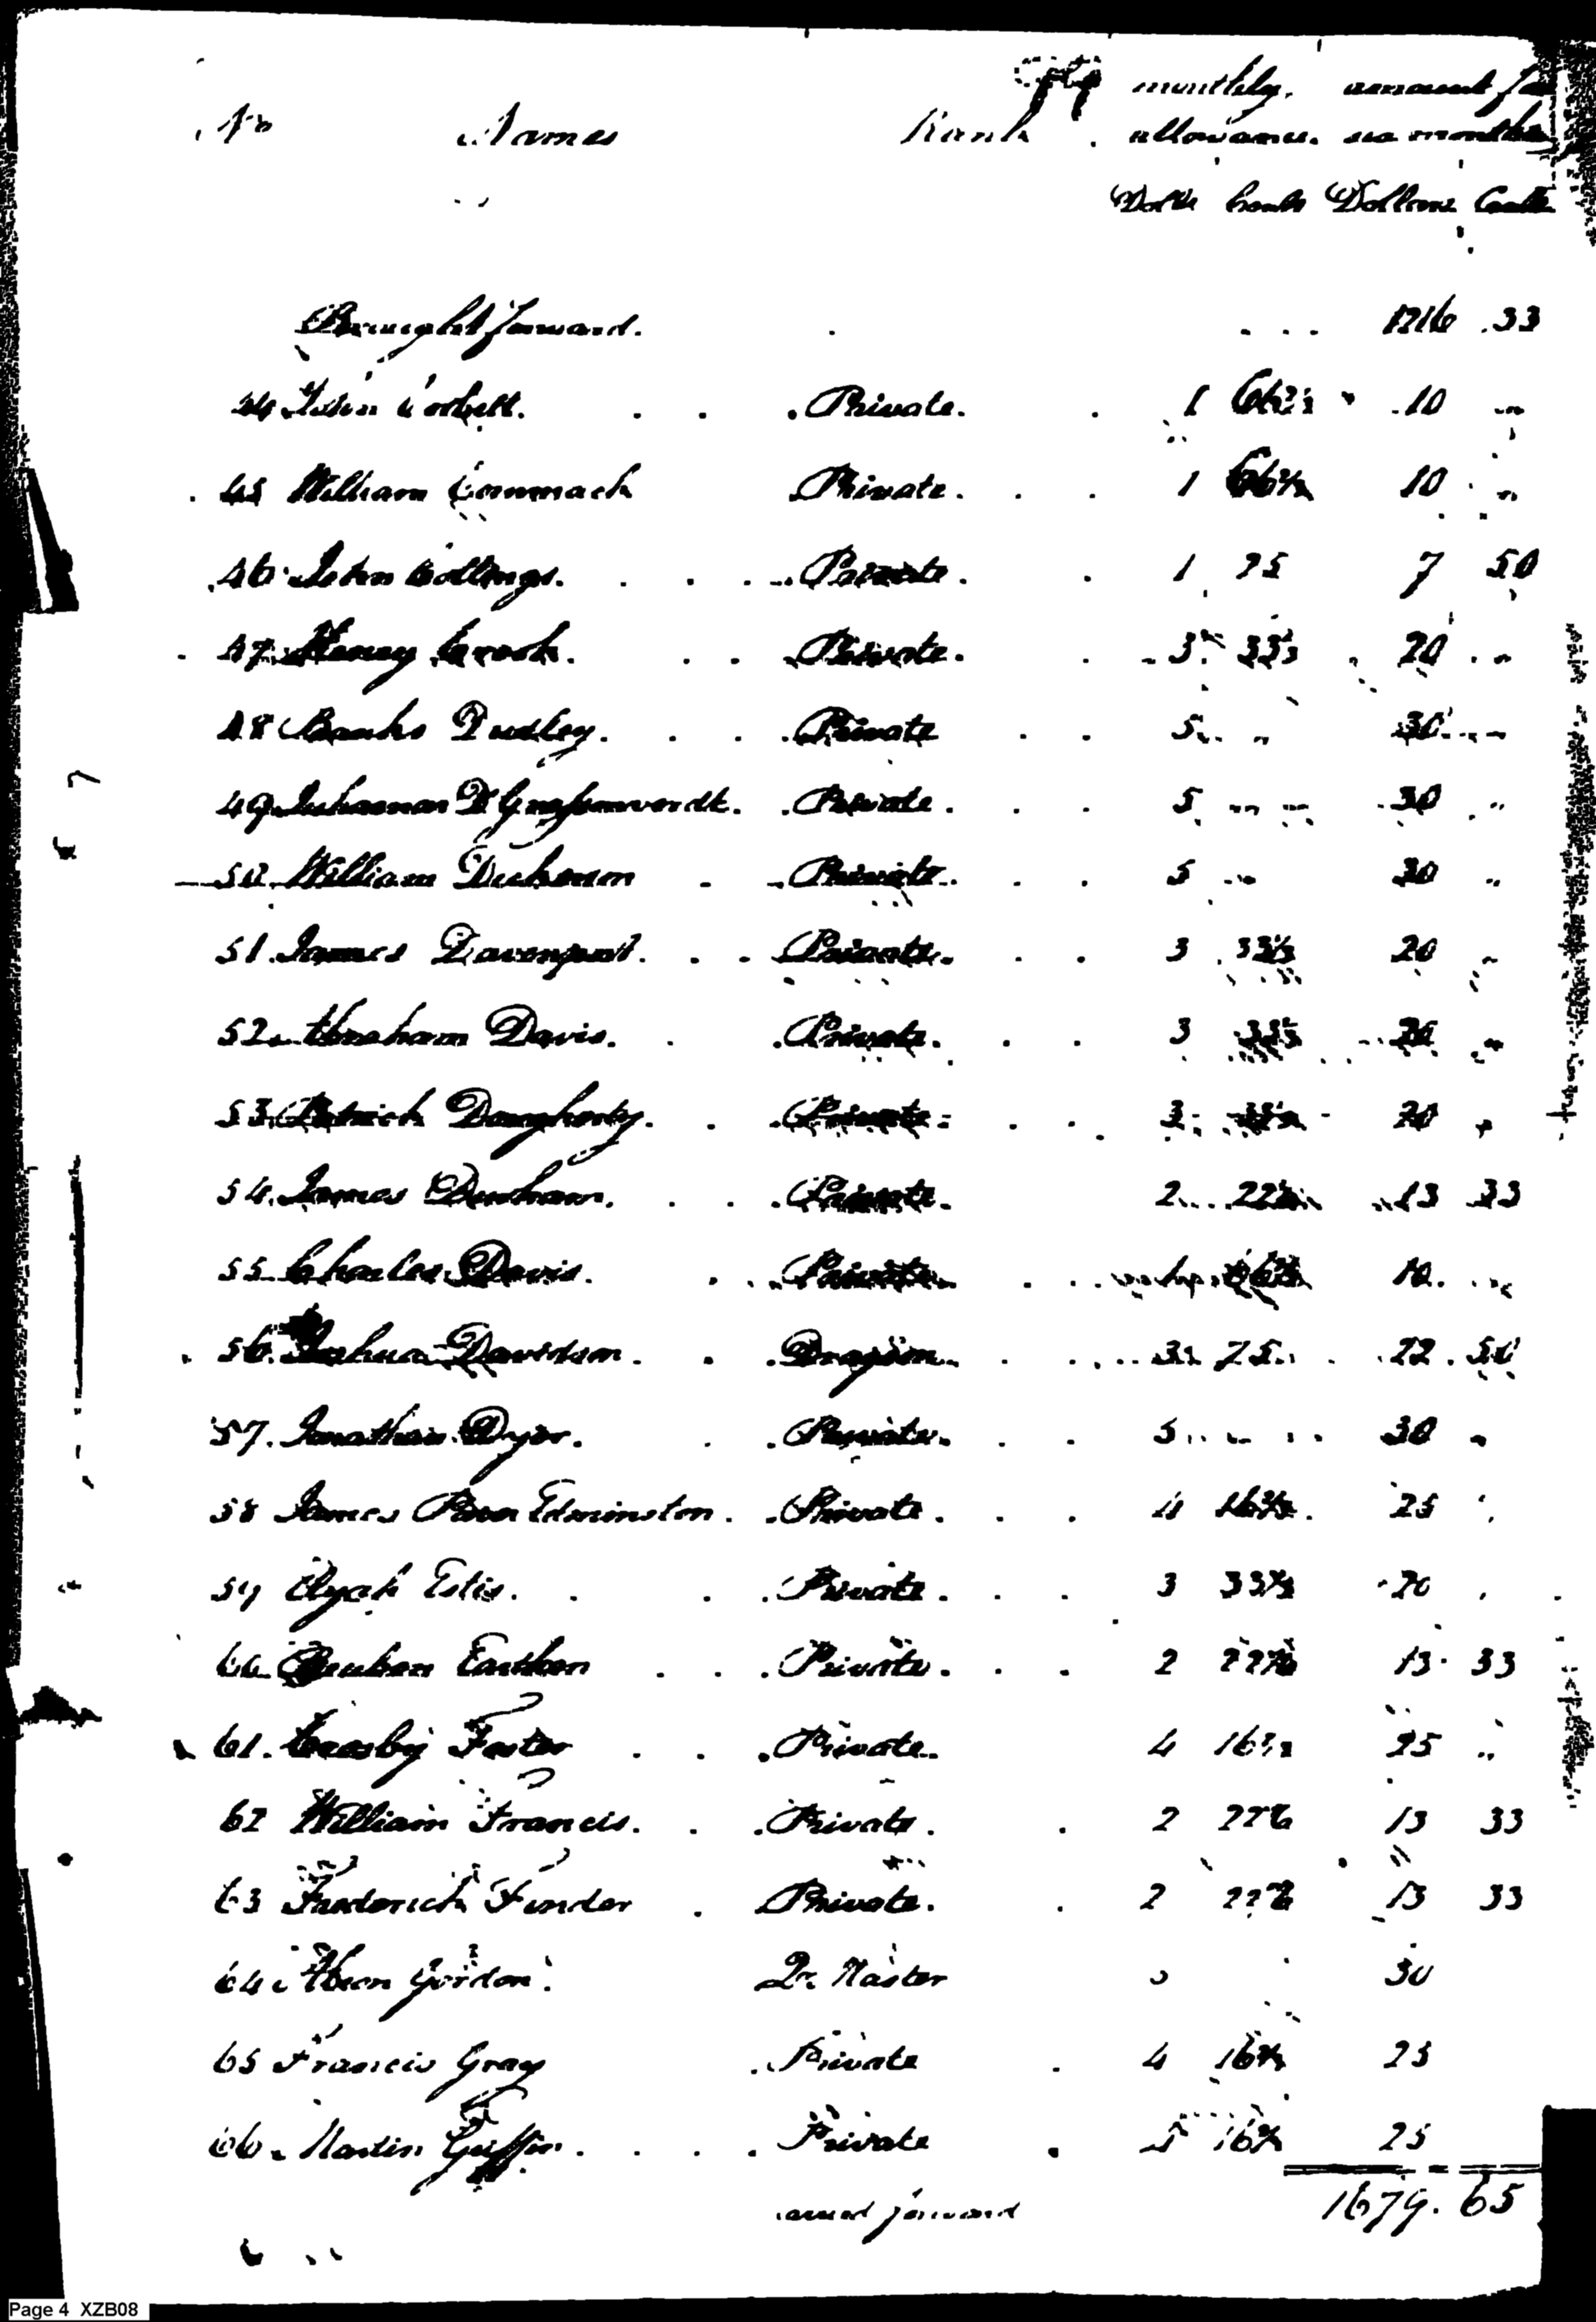 monthly. amount for
No Names Rank. allowance. six months
Dolls Cents Dollars Cents
Brought forward. 1216.33
44 John Corbett. Private. 1 66 2/3 10 "
45 William Cormack Private. 1 66 2/3 10 "
46 John Collings. Private. 1 25 7 50
47. Henry Crook. Private. 3 33 1/3 20 "
48 Banks Dudley. Private 5 " 30 "
49 D Private. 5 " " 30 "
50 William Dickerson Private. 5 " 30 "
51. James Davenport. Private. 3 33 1/3 20 "
52. Abraham Davis. Private. 3 33 1/3 20 "
53. Patrick Daugherty. Private. 3 33 1/3 20 "
54. James Dunham. Private. 2 22 13 33
55. Charles Davis. Private. 1 66 2/3 10 "
56. Joshua Davidson. Dragoon. 3 75 22.50
57. Jonathan Dyer. Private. 5 " 30 "
58 James Edminston. Private. 4 16 2/3 25 "
59 Elijah Estis. Private. 3 33 1/3 20
60 Reuben Earthen Private. 2 22 13 33
61. Cosby Foster Private. 4 16 2/3 25 "
62 William Francis. Private. 2 22 13 33
63 Frederick Fender Private. 2 22 13 33
64 Gordon. Qr. Master 5 30
65 Francis Gray Private 4 16 2/3 25
66. Martin Guffin. Private 4 16 2/3 25
carried forward 1679.65
Page 4 XZB08